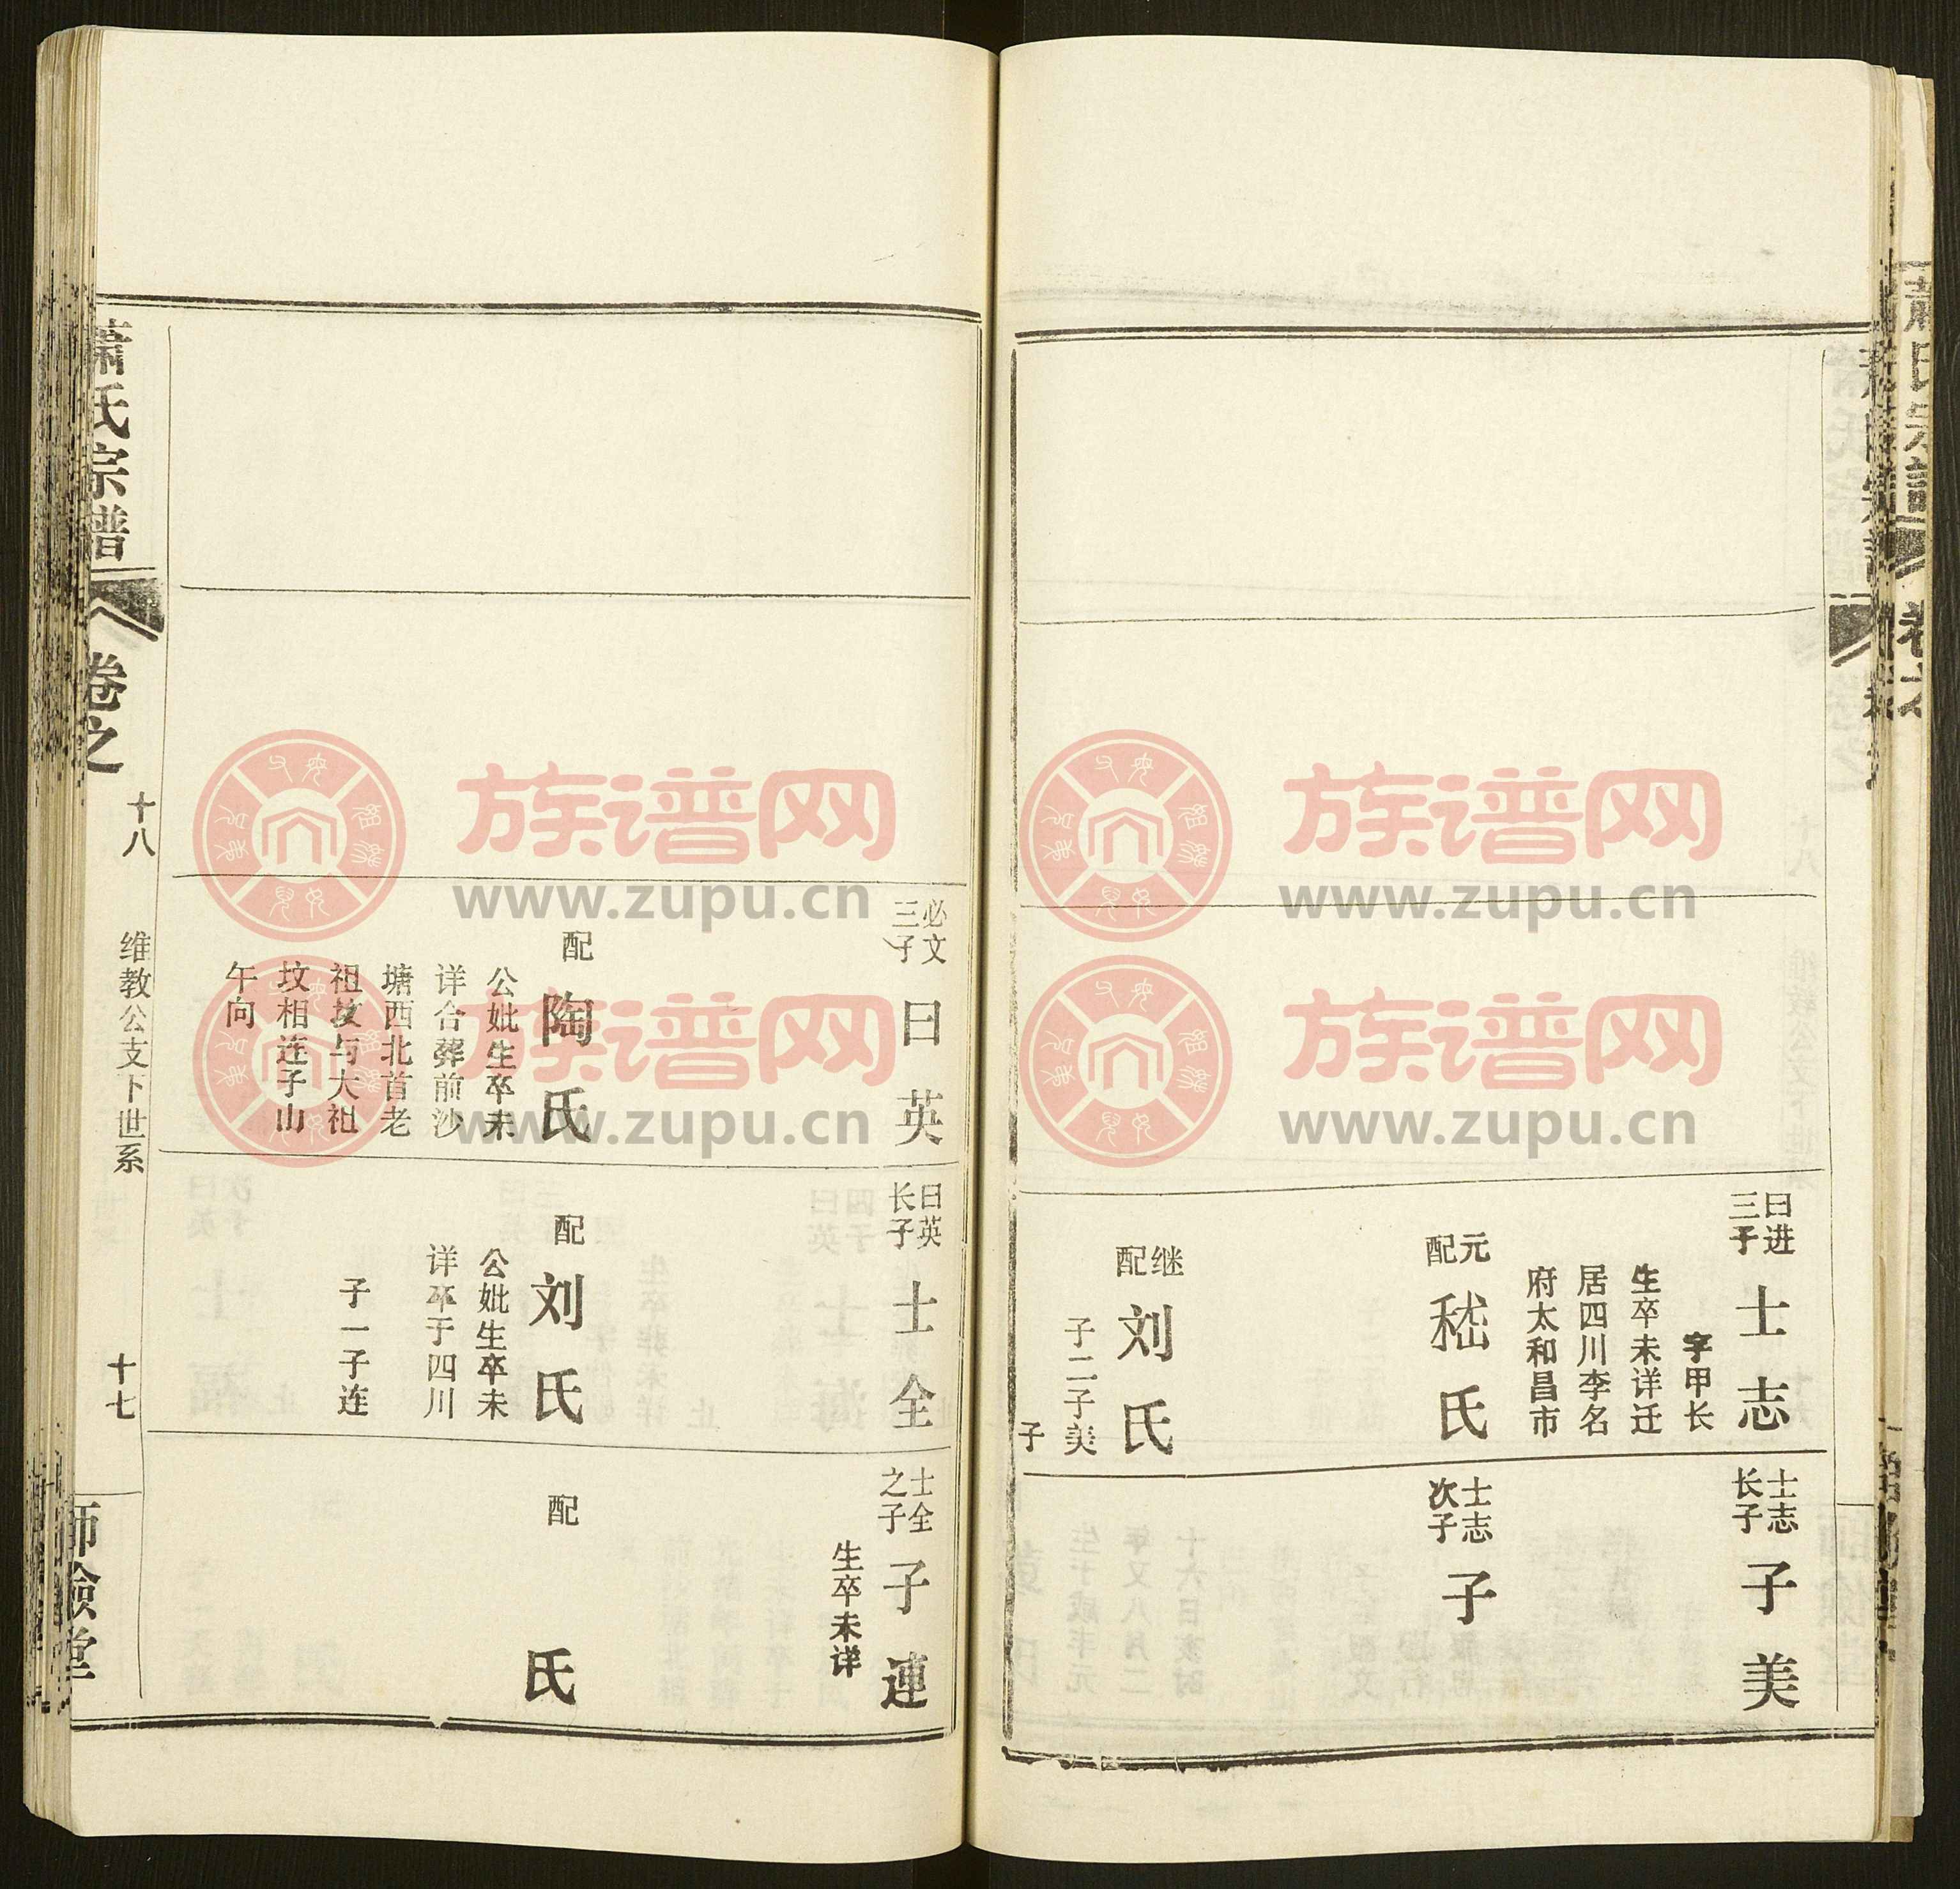 曰进
三子
士志
字甲长
生卒未详迁
居四川李名
府太和昌市
元
配
嵇氏
继
配
刘氏
子二子美
子
士志
长子
子美
士志
次子
子
必文
三子
曰英
配
陶氏
公妣生卒未
详合葬前沙
塘西北首老
祖坟与大祖
坟相连子山
午向
曰英
长子
士全
配
刘氏
公妣生卒未
详卒于四川
子一子连
士全
之子
子連
生卒未详
配
氏
萧氏宗谱
卷之
十八
维教公支下世系
十七
师俭堂
族谱网
www.zupu.cn
族谱网
www.zupu.cn
族谱网
www.zupu.cn
族谱网
www.zupu.cn